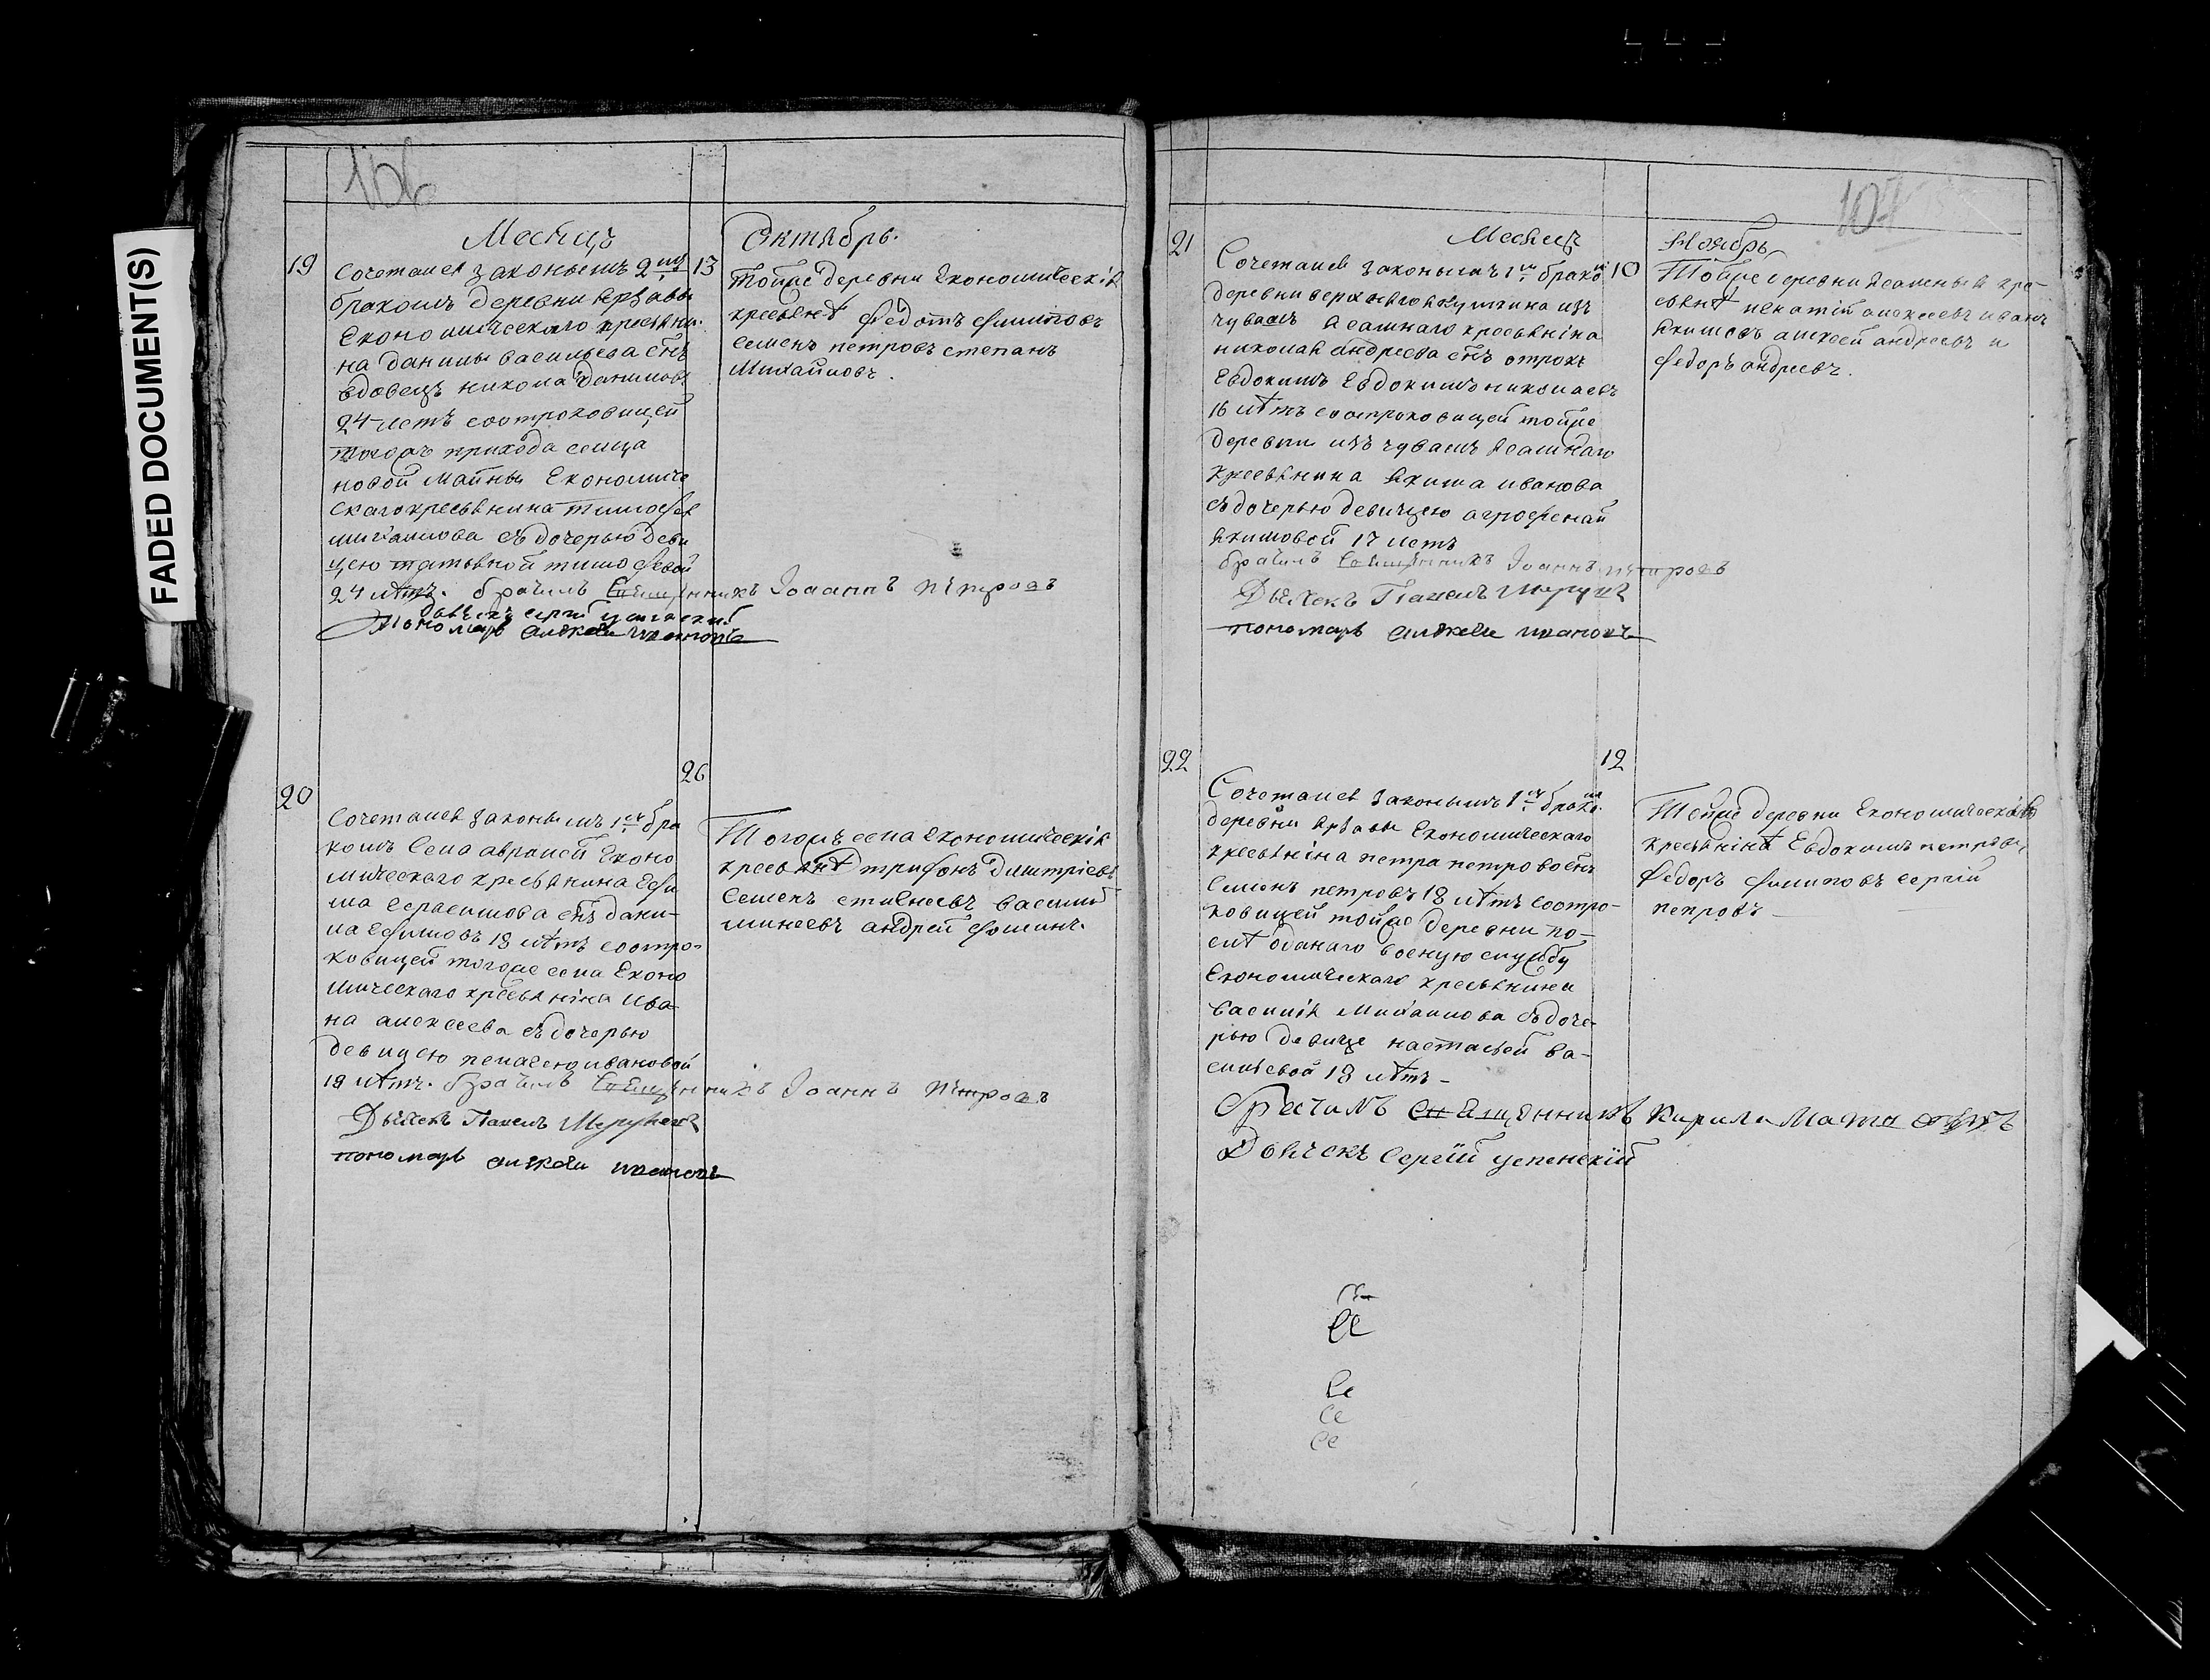 FADED DOCUMENT(S)
106
Месяцъ Октябрь.
19
Сочетался законымъ 2мъ
13
бракомъ деревни Арзавы
Економическаго кресьяни-
на данилы васильева снъ
вдовецъ никола даниловъ
24 летъ соотроковицей
тогожъ прихода сельца
новой Майны Економиче
скаго кресьянина тимофея
михаилова съ дочерью деви
цею татьяной тимофевой
24 летъ. брачилъ Священникъ Іоаннъ Петровъ
дьячекъ сергий успенский
Пономарь алѯей ивановъ
Тойже деревни Економическія
кресьяне Федотъ филиповъ
семенъ петровъ степанъ
Михайловъ.
20
26
Сочетался законымъ 1мъ бра
комъ села авралей Еконо
мическаго кресьянина Ефи
ма Герасимова снъ дани-
ла Ефимовъ 18 летъ соотро-
ковицей тогоже села Еконо
мическаго кресьяніна ива
на алексеева съ дочерью
девицею пелагеюивановой
19 летъ. брачилъ Священникъ Іоаннъ Петровъ
Дьячекъ Павелъ
пономарь ивановъ
Тогожъ села Економическія
кресьяне трифонъ дмитріевъ
Семенъ василий
минеевъ андрей фоминъ.
107
Месяцъ Ноябрь
21
Сочетался законымъ 1мъ бракомъ
10
деревни верхнягоякушкина изъ
чувашъ ясашнаго кресьяніна
николая андреева снъ отрокъ
Евдокимъ Евдокимъ николаевъ
16 летъ соотроковицей тойже
деревни изъ чувашъ ясашнаго
кресьянина Якима иванова
съ дочерью девицею агрофеной
якимовой 17 летъ
брачилъ Священникъ Іоаннъ Петровъ
Дьячекъ Павелъ
пономарь ивановъ
Тойже деревни ясашныя кре-
сьяне игнатій алексеевъ иванъ
якимовъ алексей андреевъ и
федоръ андреевъ.
22
12
Сочетался законымъ 1мъ бракомъ
деревни Арзавы Економическаго
кресьяніна петра петрова снъ
Семенъ петровъ 18 летъ соотро-
ковицей тойже деревни по-
сле оданаго военую службу
Економическаго кресьянина
василія михаилова съ доче-
рью девице настасьей ва-
силевой 18 летъ-
брачилъ Священникъ Кирила
Дьячекъ Сергій успенскій
Тойже деревни Економическія
кресьяніне Евдокимъ петровъ,
Федоръ филиповъ сергій
петровъ